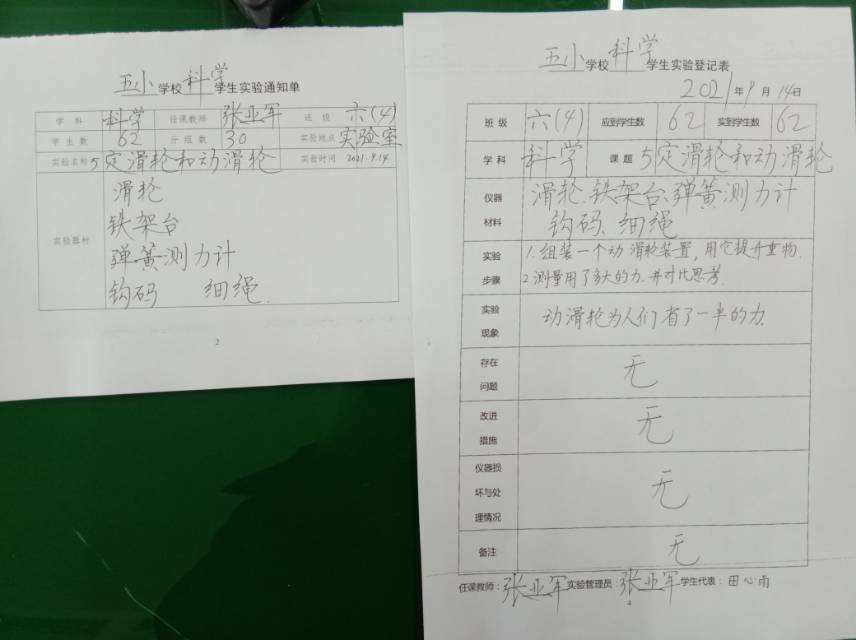 五小学校科学学生实验通知单
学 科 科学 任课教师 张亚军 班 级 六(4)
学 生 数 62 分 组 数 30 实验地点 实验室
实验名称 5定滑轮和动滑轮 实验时间 2021.9.14
实验器材
滑轮
铁架台
弹簧测力计
钩码 细绳.
2
五小学校科学学生实验登记表
2021年9月14日
班 级 六(4) 应到学生数 62 实到学生数 62
学 科 科学 课 题 5定滑轮和动滑轮
仪器材料 滑轮.铁架台.弹簧测力计
钩码、细绳
实验步骤 1.组装一个动滑轮装置,用它提升重物.
2测量用了多大的力.并对比思考.
实验现象 动滑轮为人们省了一半的力.
存在问题 无
改进措施 无
仪器损坏与处理情况 无
备注 无
任课教师:张亚军 实验管理员:张亚军 学生代表:田心雨
4